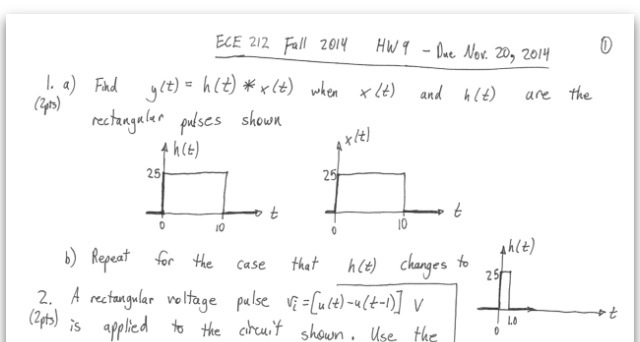 ECE 212 Fall 2014 HW 9 - Due Nov. 20, 2014 ①
1. a) Find y(t) = h(t) * x(t) when x(t) and h(t) are the
(2pts) rectangular pulses shown
h(t) x(t)
25 25
0 10 t 0 10 t
b) Repeat for the case that h(t) changes to h(t)
25
0 1.0 t
2. A rectangular voltage pulse vi = [u(t)-u(t-1)] V
(2pts) is applied to the circuit shown. Use the